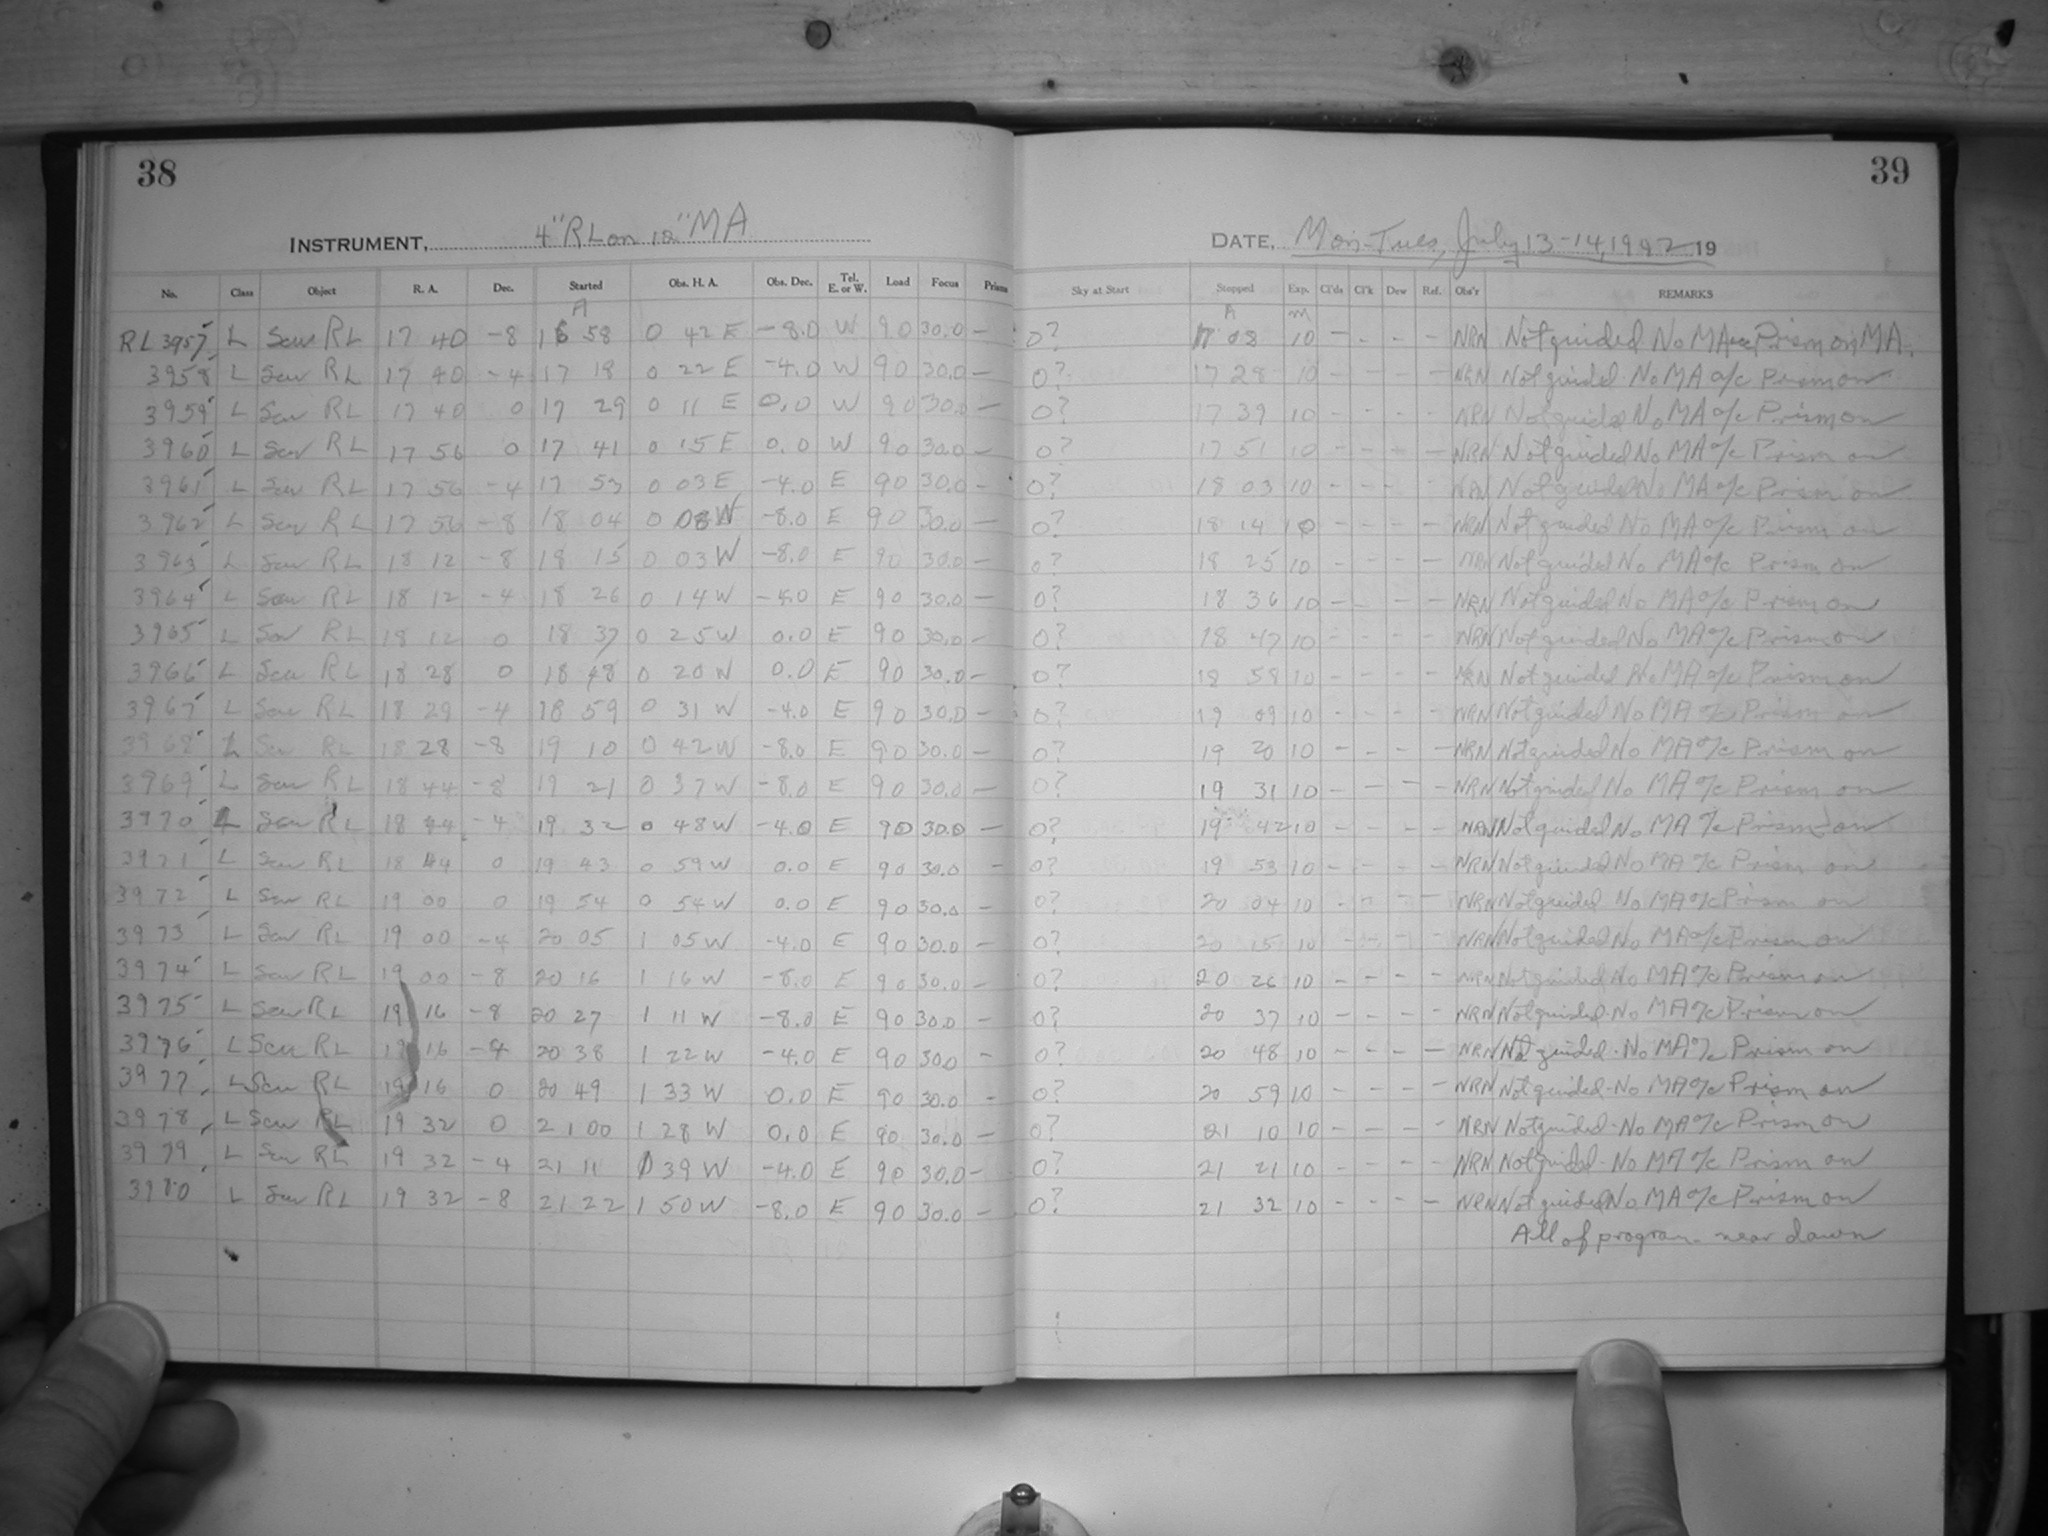 38
39
INSTRUMENT, 4" RL on 12" MA
DATE, Mon-Tues, July 13-14, 1942 19
No. Class Object R. A. Dec. Started Obs. H. A. Obs. Dec. Tel. E. or W. Load Focus Prism Sky at Start Stopped Exp. Cl'ds Cl'k Dew Ref. Obs'r REMARKS
RL 3957 L RL 17 40 -8 16 58 0 42 E -8.0 W 90 30.0 - 0? 17 08 10 - - - - NRN Not guided No MA Prism on MA.
3958 L RL 17 40 -4 17 18 0 22 E -4.0 W 90 30.0 - 0? 17 28 10 - - - - NRN Not guided No MA a/c Prism on
3959 L RL 17 40 0 17 29 0 11 E 0.0 W 90 30.0 - 0? 17 39 10 - - - - NRN Not guided No MA a/c Prism on
3960 L RL 17 56 0 17 41 0 15 E 0.0 W 90 30.0 - 0? 17 51 10 - - - - NRN Not guided No MA a/c Prism on
3961 L RL 17 56 -4 17 53 0 03 E -4.0 E 90 30.0 - 0? 18 03 10 - - - - NRN Not guided No MA a/c Prism on
3962 L RL 17 56 -8 18 04 0 08 W -8.0 E 90 30.0 - 0? 18 14 10 - - - - NRN Not guided No MA a/c Prism on
3963 L RL 18 12 -8 18 15 0 03 W -8.0 E 90 30.0 - 0? 18 25 10 - - - - NRN Not guided No MA a/c Prism on
3964 L RL 18 12 -4 18 26 0 14 W -4.0 E 90 30.0 - 0? 18 36 10 - - - - NRN Not guided No MA a/c Prism on
3965 L RL 18 12 0 18 37 0 25 W 0.0 E 90 30.0 - 0? 18 47 10 - - - - NRN Not guided No MA a/c Prism on
3966 L RL 18 28 0 18 48 0 20 W 0.0 E 90 30.0 - 0? 18 58 10 - - - - NRN Not guided No MA a/c Prism on
3967 L RL 18 29 -4 18 59 0 31 W -4.0 E 90 30.0 - 0? 19 09 10 - - - - NRN Not guided No MA a/c Prism on
3968 L RL 18 28 -8 19 10 0 42 W -8.0 E 90 30.0 - 0? 19 20 10 - - - - NRN Not guided No MA a/c Prism on
3969 L RL 18 44 -8 19 21 0 37 W -8.0 E 90 30.0 - 0? 19 31 10 - - - - NRN Not guided No MA a/c Prism on
3970 L RL 18 44 -4 19 32 0 48 W -4.0 E 90 30.0 - 0? 19 42 10 - - - - NRN Not guided No MA a/c Prism on
3971 L RL 18 44 0 19 43 0 59 W 0.0 E 90 30.0 - 0? 19 53 10 - - - - NRN Not guided No MA a/c Prism on
3972 L RL 19 00 0 19 54 0 54 W 0.0 E 90 30.0 - 0? 20 04 10 - - - - NRN Not guided No MA a/c Prism on
3973 L RL 19 00 -4 20 05 1 05 W -4.0 E 90 30.0 - 0? 20 15 10 - - - - NRN Not guided No MA a/c Prism on
3974 L RL 19 00 -8 20 16 1 16 W -8.0 E 90 30.0 - 0? 20 26 10 - - - - NRN Not guided No MA a/c Prism on
3975 L RL 19 16 -8 20 27 1 11 W -8.0 E 90 30.0 - 0? 20 37 10 - - - - NRN Not guided No MA a/c Prism on
3976 L RL 19 16 -4 20 38 1 22 W -4.0 E 90 30.0 - 0? 20 48 10 - - - - NRN Not guided No MA a/c Prism on
3977 L RL 19 16 0 20 49 1 33 W 0.0 E 90 30.0 - 0? 20 59 10 - - - - NRN Not guided No MA a/c Prism on
3978 L RL 19 32 0 21 00 1 28 W 0.0 E 90 30.0 - 0? 21 10 10 - - - - NRN Not guided No MA a/c Prism on
3979 L RL 19 32 -4 21 11 1 39 W -4.0 E 90 30.0 - 0? 21 21 10 - - - - NRN Not guided No MA a/c Prism on
3980 L RL 19 32 -8 21 22 1 50 W -8.0 E 90 30.0 - 0? 21 32 10 - - - - NRN Not guided No MA a/c Prism on
All of program near dawn